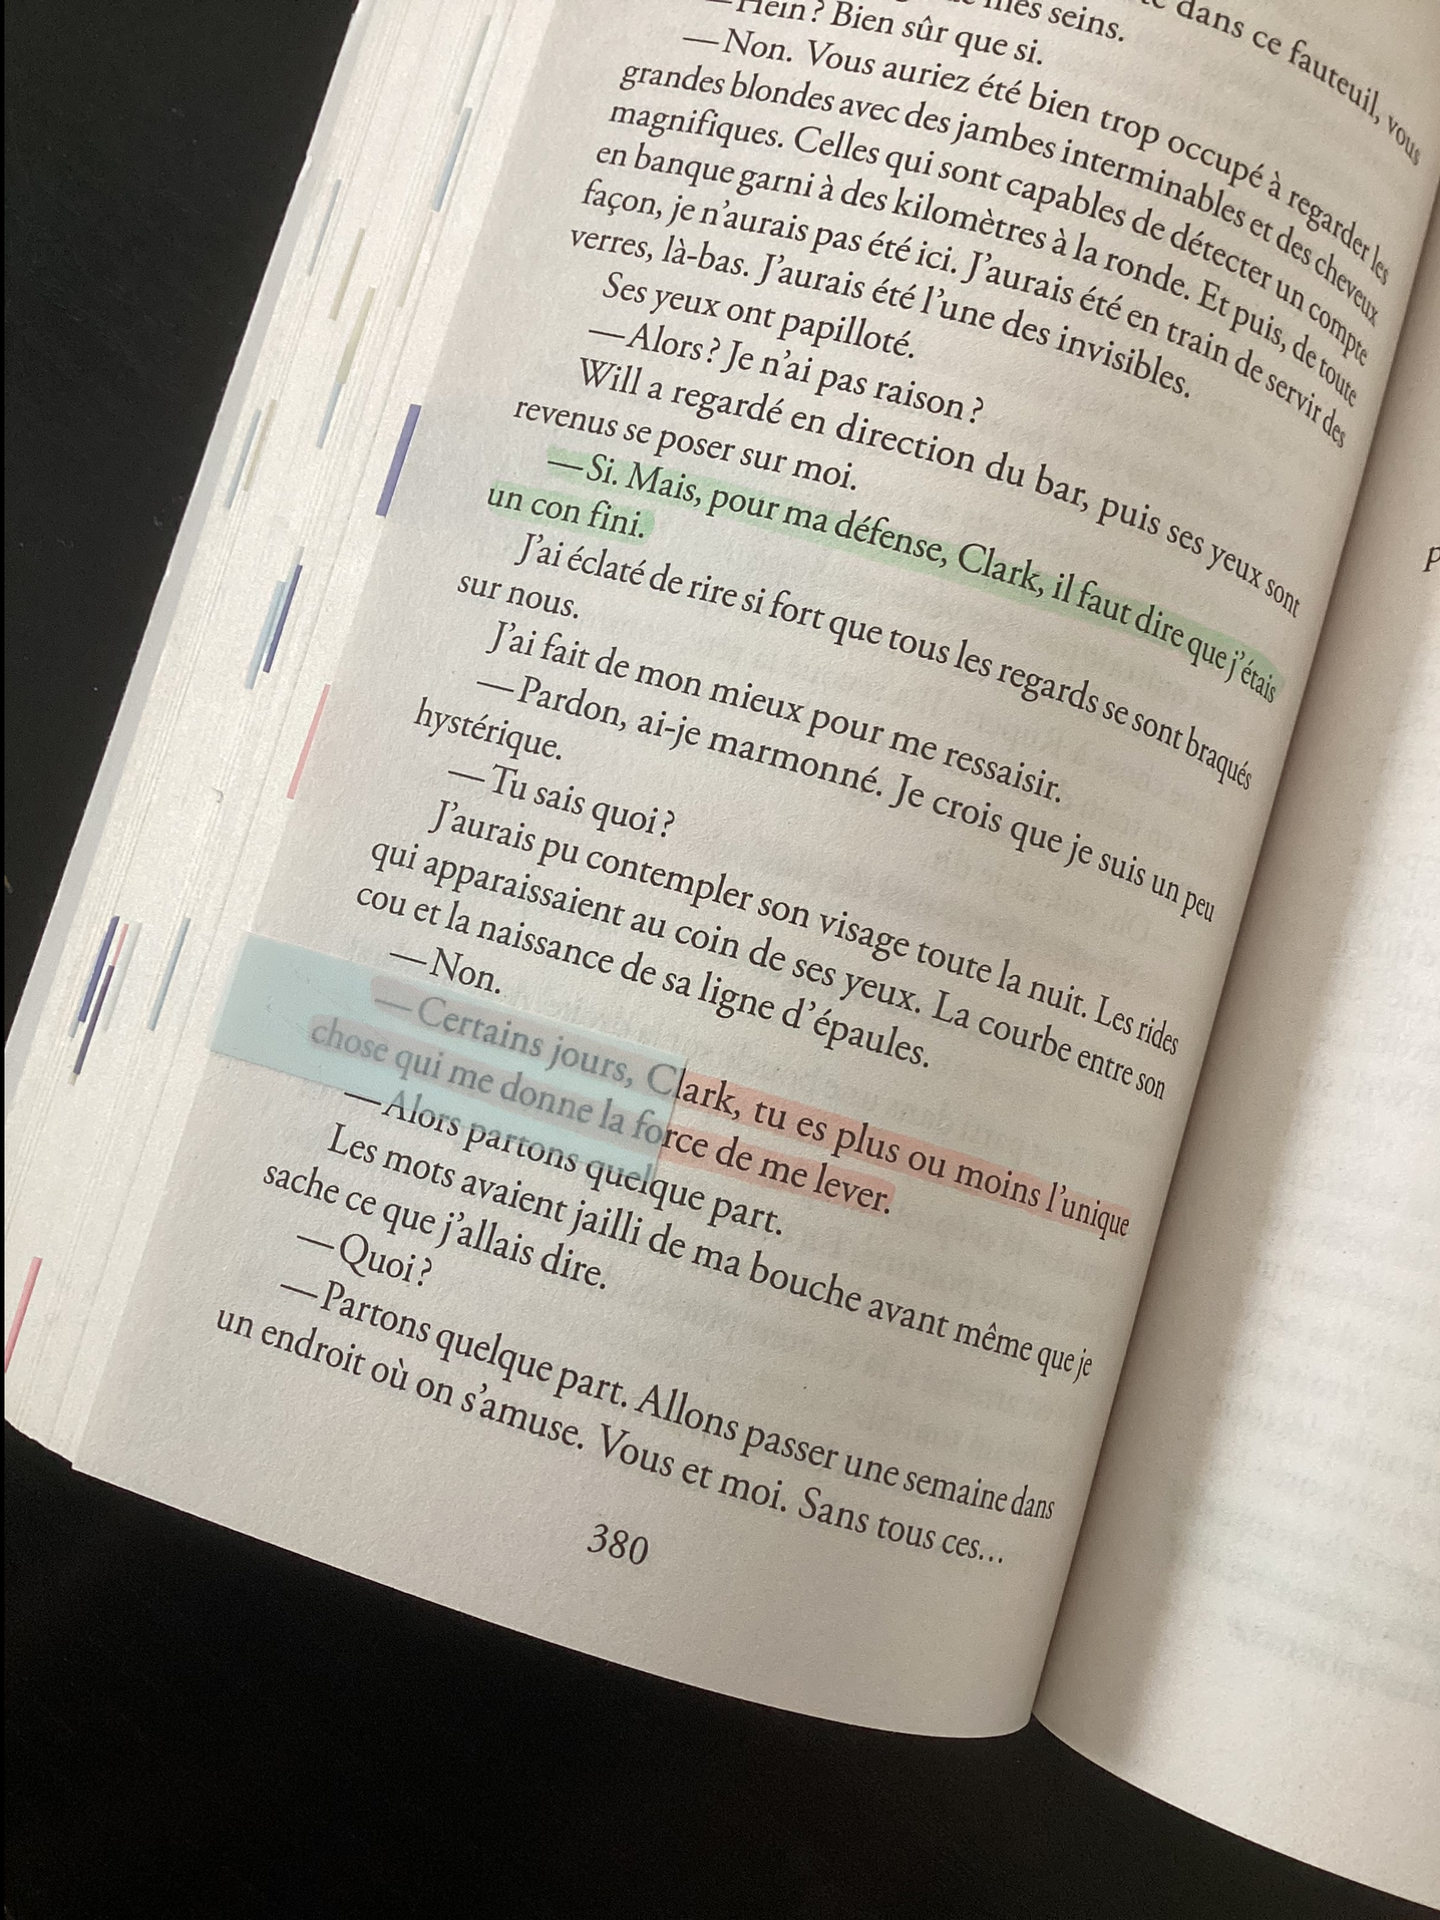 dans ce fauteuil, vous
mes seins.
—Hein ? Bien sûr que si.
—Non. Vous auriez été bien trop occupé à regarder les
grandes blondes avec des jambes interminables et des cheveux
magnifiques. Celles qui sont capables de détecter un compte
en banque garni à des kilomètres à la ronde. Et puis, de toute
façon, je n'aurais pas été ici. J'aurais été en train de servir des
verres, là-bas. J'aurais été l'une des invisibles.
Ses yeux ont papilloté.
—Alors ? Je n'ai pas raison ?
Will a regardé en direction du bar, puis ses yeux sont
revenus se poser sur moi.
—Si. Mais, pour ma défense, Clark, il faut dire que j'étais
un con fini.
J'ai éclaté de rire si fort que tous les regards se sont braqués
sur nous.
J'ai fait de mon mieux pour me ressaisir.
—Pardon, ai-je marmonné. Je crois que je suis un peu
hystérique.
—Tu sais quoi ?
J'aurais pu contempler son visage toute la nuit. Les rides
qui apparaissaient au coin de ses yeux. La courbe entre son
cou et la naissance de sa ligne d'épaules.
—Non.
—Certains jours, Clark, tu es plus ou moins l'unique
chose qui me donne la force de me lever.
—Alors partons quelque part.
Les mots avaient jailli de ma bouche avant même que je
sache ce que j'allais dire.
—Quoi ?
—Partons quelque part. Allons passer une semaine dans
un endroit où on s'amuse. Vous et moi. Sans tous ces…
380